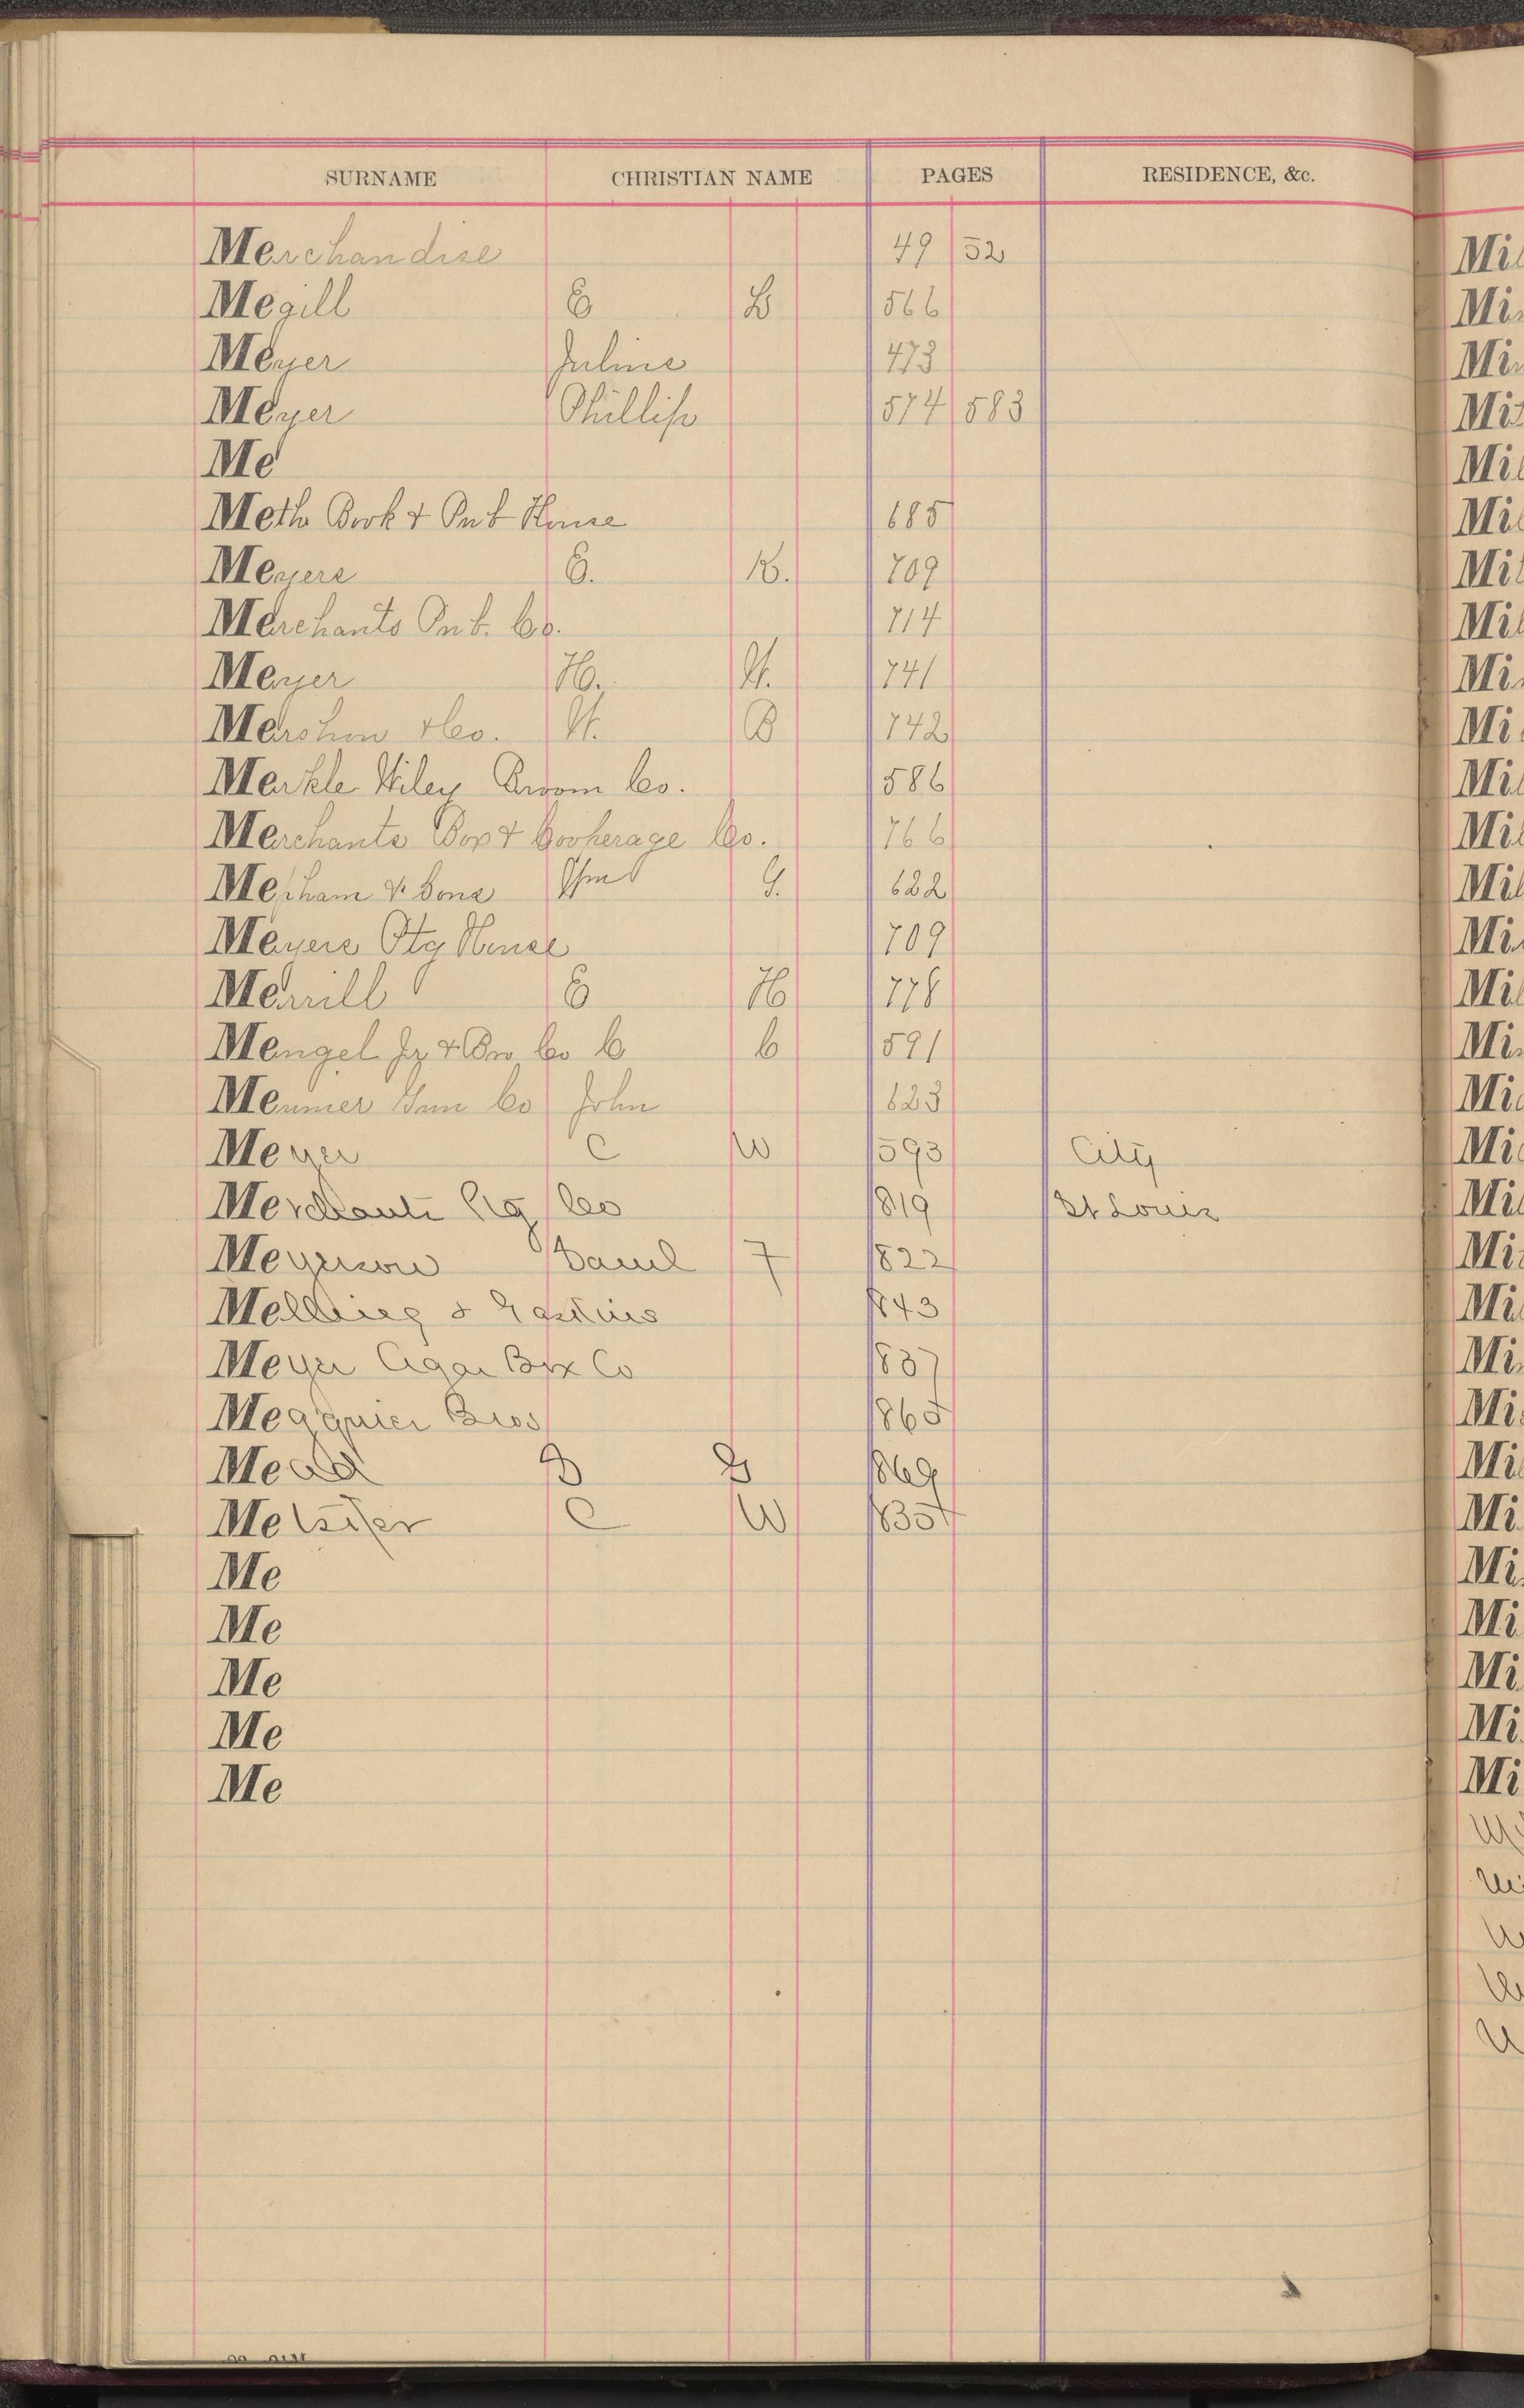 SURNAME CHRISTIAN NAME PAGES RESIDENCE, &c.
Merchandise 49 52
Megill C B 566
Meyer Julius 473
Meyer Phillip 574 583
Me
Meth Book & Pub House 685
Meyers C. K. 709
Merchants Pub. Co. 714
Meyer H. W. 741
Mershon & Co. W. B 742
Merkle Wiley Broom Co. 586
Merchants Box & Cooperage Co. 766
Mecham & Sons Thos G. 622
Meyers Ptg House 709
Merrill C H 778
Mengel Jr & Bro Co C C 591
Menner Co John 623
Meyer C W 593 City
Merchants Ptg Co 819 St Louis
Meyerson Saml 7 822
Mellbieg & 843
Meyer Cigar Box Co 837
Meaguier Bros 865
Mead B B 869
Me C W 835
Me
Me
Me
Me
Me
Mil
Mi
Mi
Mi
Mil
Mil
Mil
Mil
Mi
Mi
Mil
Mil
Mil
Mi
Mil
Mi
Mi
Mi
Mil
Mi
Mil
Mi
Mi
Mil
Mi
Mi
Mi
Mi
Mi
Mi